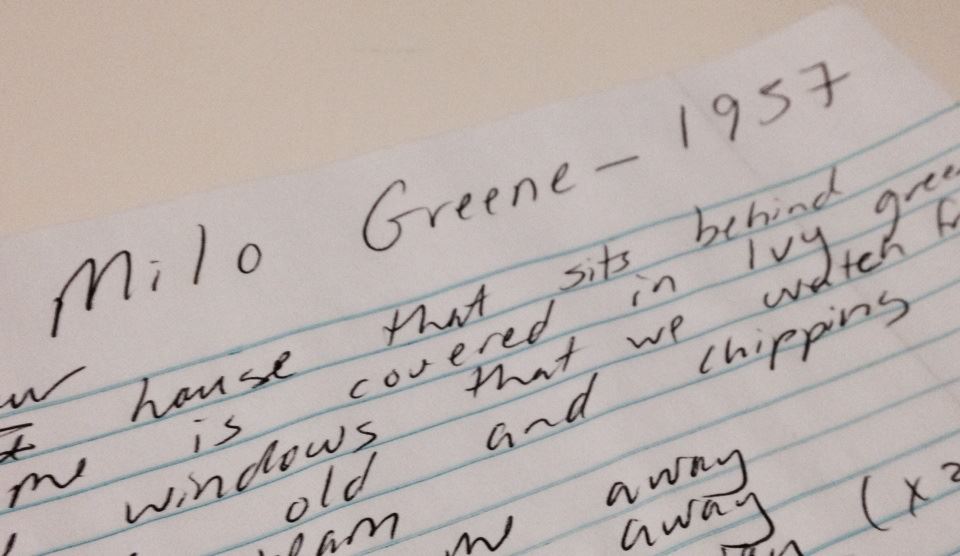 Milo Greene - 1957
house that sits behind
is covered in Ivy
me windows that we watch
old and chipping
away
away (x2